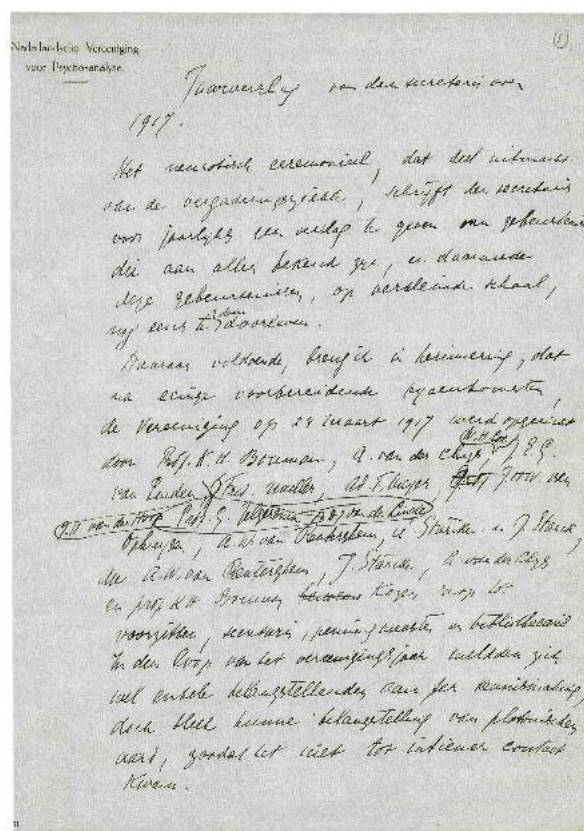 (1)
Nederlandsche Vereeniging
voor Psycho-analyse.
Jaarverslag van den secretaris over
1917.
Het neurotisch ceremonieel, dat deel uitmaakt
van de vergaderingsziekte, schrijft den secretaris
voor jaarlijks een verslag te geven van gebeurtenissen
die aan allen bekend zijn, en daarmede
deze gebeurtenissen, op verkleinde schaal,
nog eens te doen doorleven.
Daaraan voldoende, breng ik in herinnering, dat
na eenige voorbereidende bijeenkomsten,
de Vereeniging op 24 Maart 1917 werd opgericht
door Prof. K. H. Bouman, A. van der Chijs, J. E. G.
van Emden, Ad. F. Meijer, J. H. W. van
J. H. van der Hoop Prof. G. Jelgersma
Ophuijsen, A. W. van Renterghem, A. Stärcke en J. Stärcke,
die A. W. van Renterghem, J. Stärcke, A. van der Chijs
en prof. K. H. Bouman kozen tot
voorzitter, secretaris, penningmeester en bibliothecaris
In den loop van het vereenigingsjaar meldden zich
wel enkele belangstellenden aan ter kennismaking,
doch bleef hunne belangstelling van platonischen
aard, zoodat het niet tot intiemer contact
kwam.